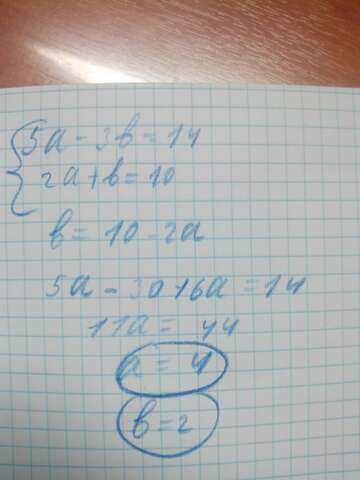 5a - 3b = 14
2a + b = 10
b = 10 - 2a
5a - 30 + 6a = 14
11a = 44
a = 4
b = 2